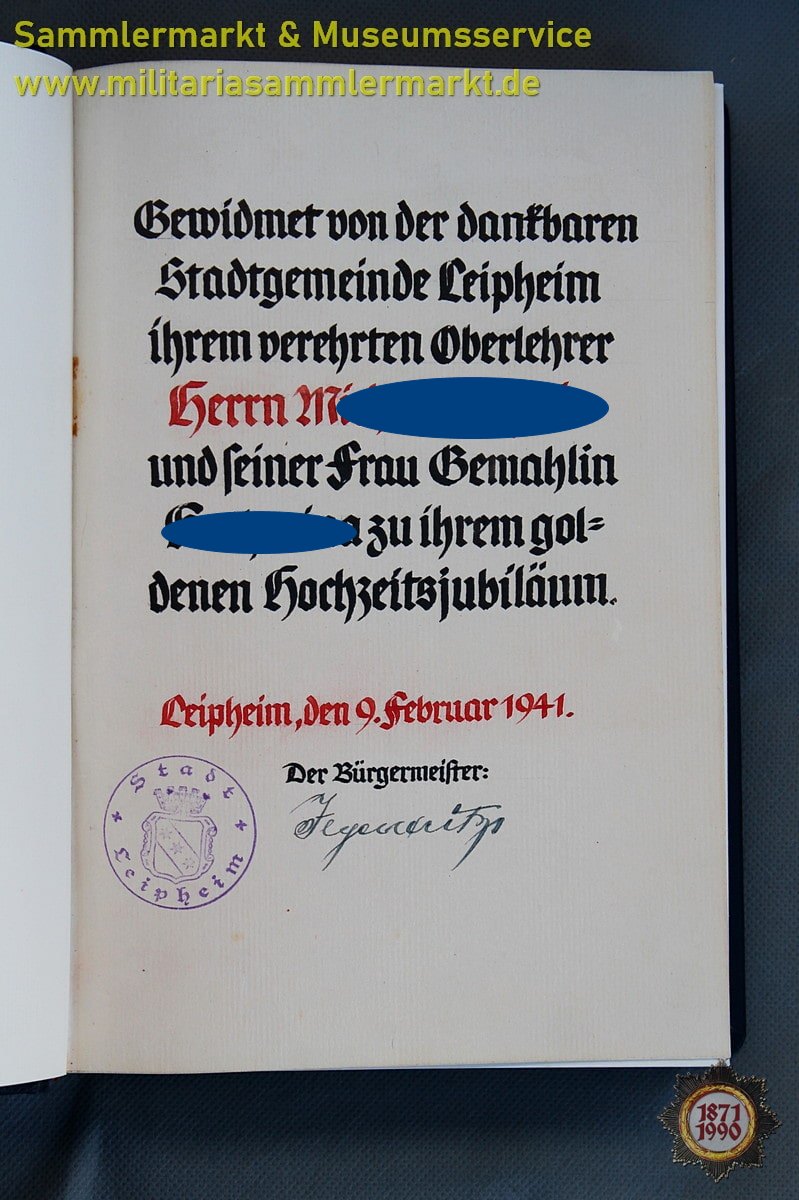 Sammlermarkt & Museumsservice
www.militariasammlermarkt.de
Gewidmet von der dankbaren
Stadtgemeinde Leipheim
ihrem verehrten Oberlehrer
Herrn
und seiner Frau Gemahlin
zu ihrem gol=
denen Hochzeitsjubiläum.
Leipheim, den 9. Februar 1941.
Der Bürgermeister:
Stadt
Leipheim
1871
1990